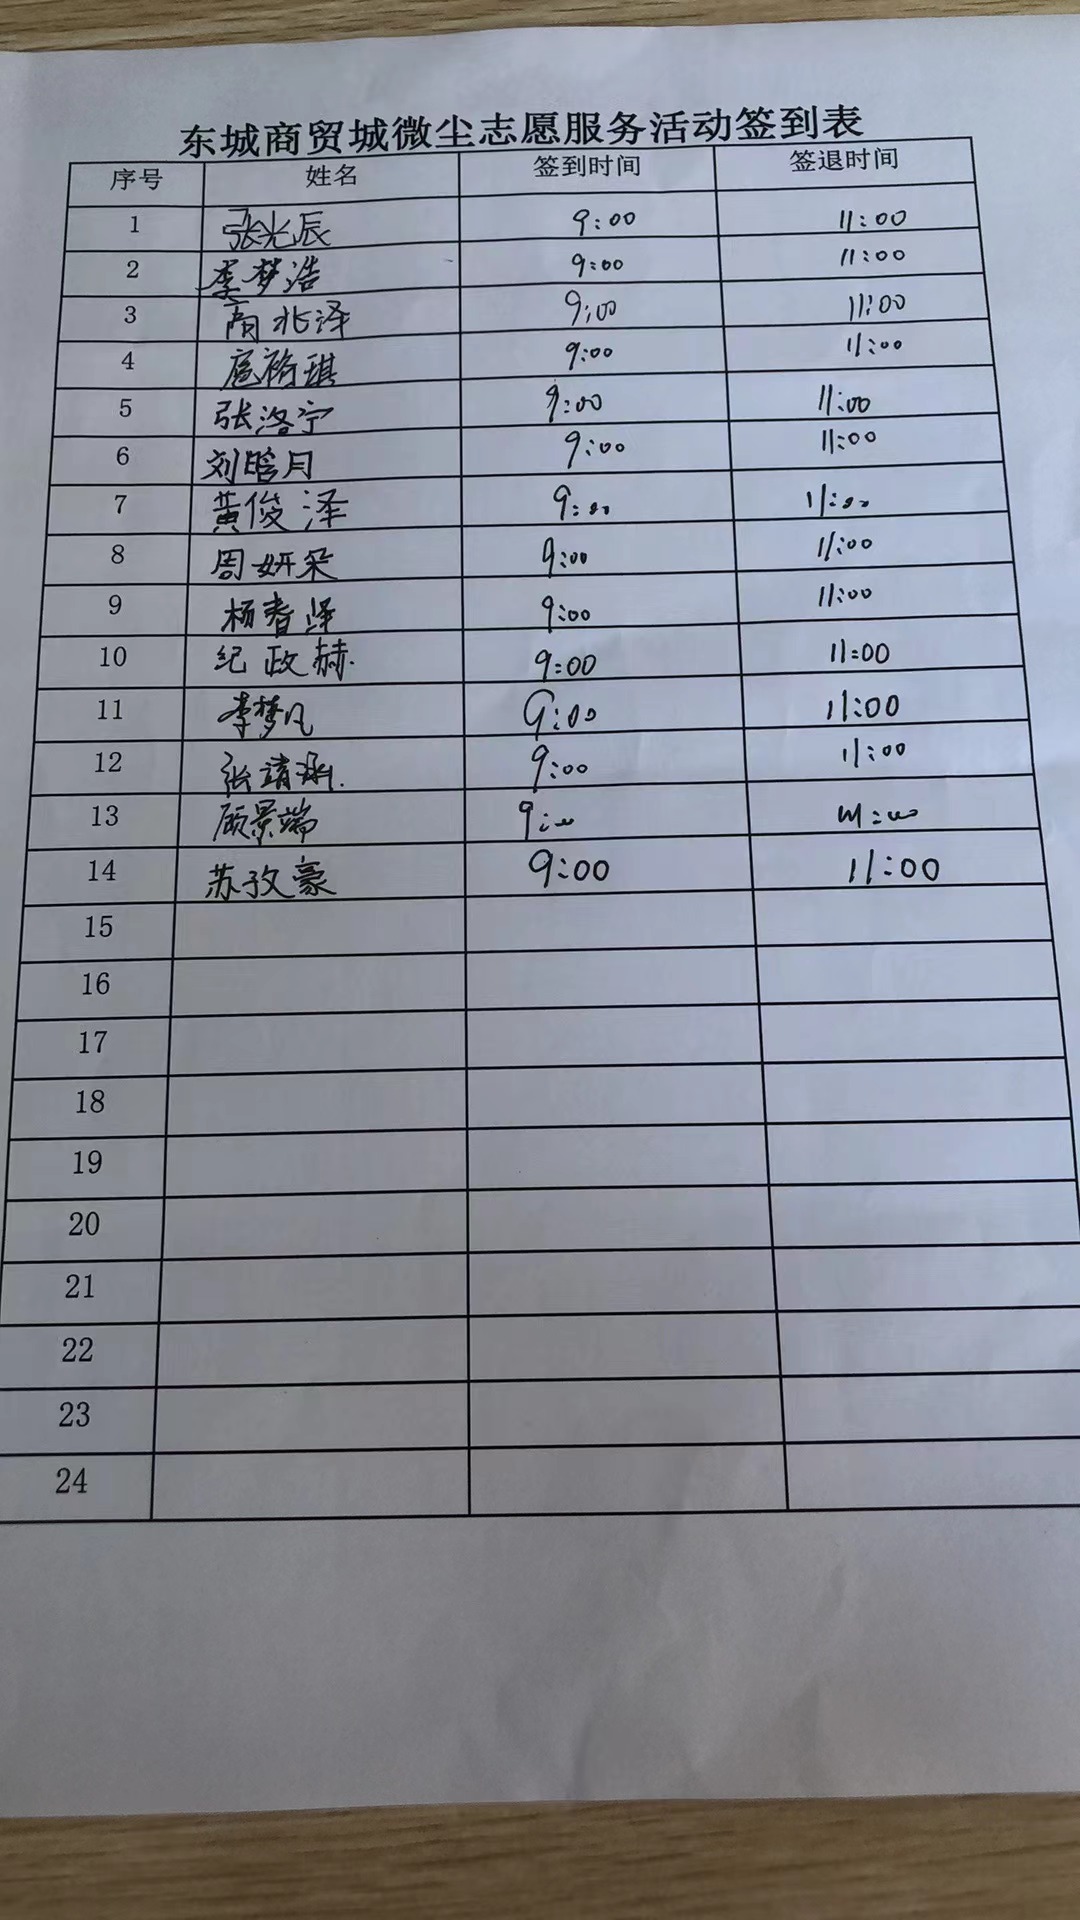 东城商贸城微尘志愿服务活动签到表
序号 姓名 签到时间 签退时间
1 张光辰 9:00 11:00
2 李梦浩 9:00 11:00
3 商兆泽 9:00 11:00
4 扈裕琪 9:00 11:00
5 张洛宁 9:00 11:00
6 刘晗月 9:00 11:00
7 黄俊泽 9:00 11:00
8 周妍朵 9:00 11:00
9 杨春泽 9:00 11:00
10 纪政赫 9:00 11:00
11 李梦凡 9:00 11:00
12 张靖 9:00 11:00
13 顾景端 9:00 11:00
14 苏孜豪 9:00 11:00
15
16
17
18
19
20
21
22
23
24